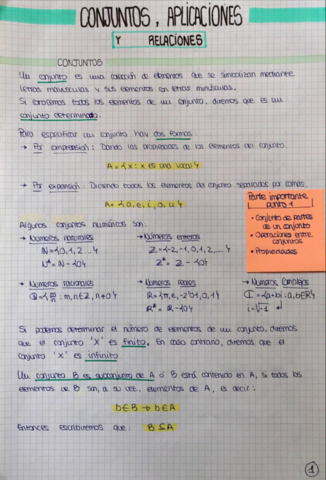 CONJUNTOS, APLICACIONES
Y RELACIONES
CONJUNTOS
Un conjunto es una colección de elementos que se simbolizan mediante
letras mayúsculas y sus elementos con letras minúsculas.
Si conocemos todos los elementos de un conjunto, diremos que es un
conjunto determinado.
Para especificar un conjunto hay dos formas
→ Por comprensión: Dando las propiedades de los elementos del conjunto.
A = {x : x es una vocal}
→ Por expansión: Diciendo todos los elementos del conjunto separados por comas.
A = {a, e, i, o, u}
Parte importante
punto 1
• Conjunto de partes
de un conjunto
• Operaciones entre
conjuntos
• Propiedades
Algunos conjuntos numéricos son:
→ Números naturales
N = {0, 1, 2, ...}
N* = N - {0}
→ Números enteros
Z = {-2, -1, 0, 1, 2, ...}
Z* = Z - {0}
→ Números racionales
Q = {m/n : m, n ∈ Z, n ≠ 0}
→ Números reales
R = {π, e, -2'61, 0, 1}
R* = R - {0}
→ Números complejos
C = {a+bi : a, b ∈ R}
i = √-1
Si podemos determinar el número de elementos de un conjunto, diremos
que el conjunto 'X' es finito. En caso contrario, diremos que el
conjunto 'X' es infinito
Un conjunto B es subconjunto de A ó B está contenido en A, si todos los
elementos de B son, a su vez, elementos de A, es decir:
b ∈ B → b ∈ A
Entonces escribiremos que: B ⊆ A
1